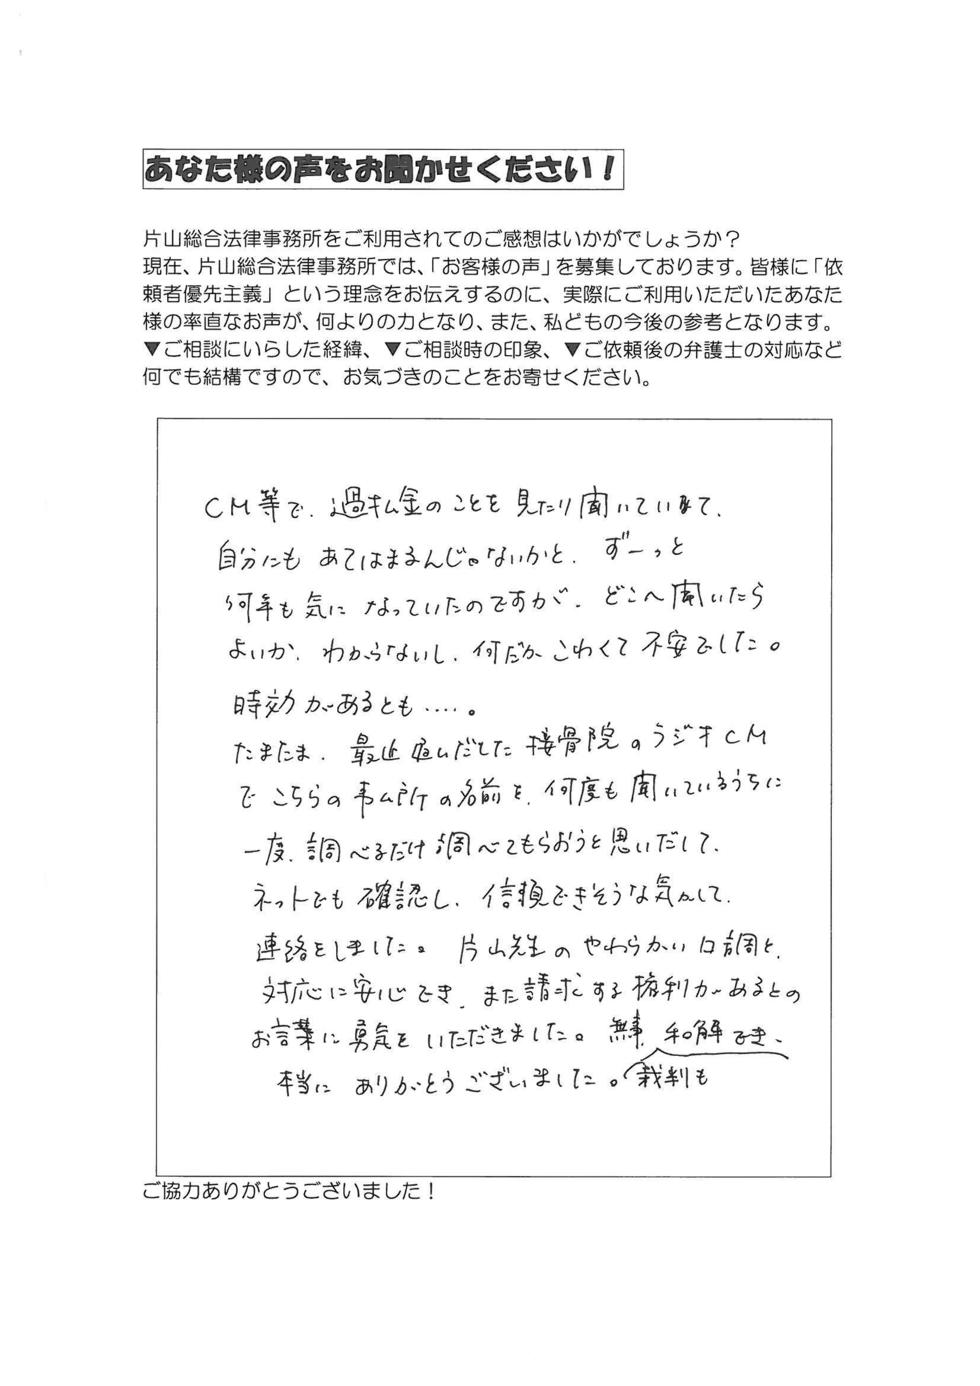 あなた様の声をお聞かせください！
片山総合法律事務所をご利用されてのご感想はいかがでしょうか？
現在、片山総合法律事務所では、「お客様の声」を募集しております。皆様に「依
頼者優先主義」という理念をお伝えするのに、実際にご利用いただいたあなた
様の率直なお声が、何よりの力となり、また、私どもの今後の参考となります。
▼ご相談にいらした経緯、▼ご相談時の印象、▼ご依頼後の弁護士の対応など
何でも結構ですので、お気づきのことをお寄せください。
CM等で、過払金のことを見たり聞いていて、
自分にもあてはまるんじゃないかと、ずーっと
何年も気になっていたのですが、どこへ聞いたら
よいか、わからないし、何だかこわくて不安でした。
時効があるとも‥‥。
たまたま、最近 接骨院のラジオCM
でこちらの事ム所の名前を、何度も聞いているうちに
一度、調べるだけ調べてもらおうと思いだして、
ネットでも確認し、信頼できそうな気がして、
連絡をしました。片山先生のやわらかい口調と、
対応に安心でき、また請求する権利があるとの
お言葉に勇気をいただきました。無事、和解でき、
本当にありがとうございました。裁判も
ご協力ありがとうございました！